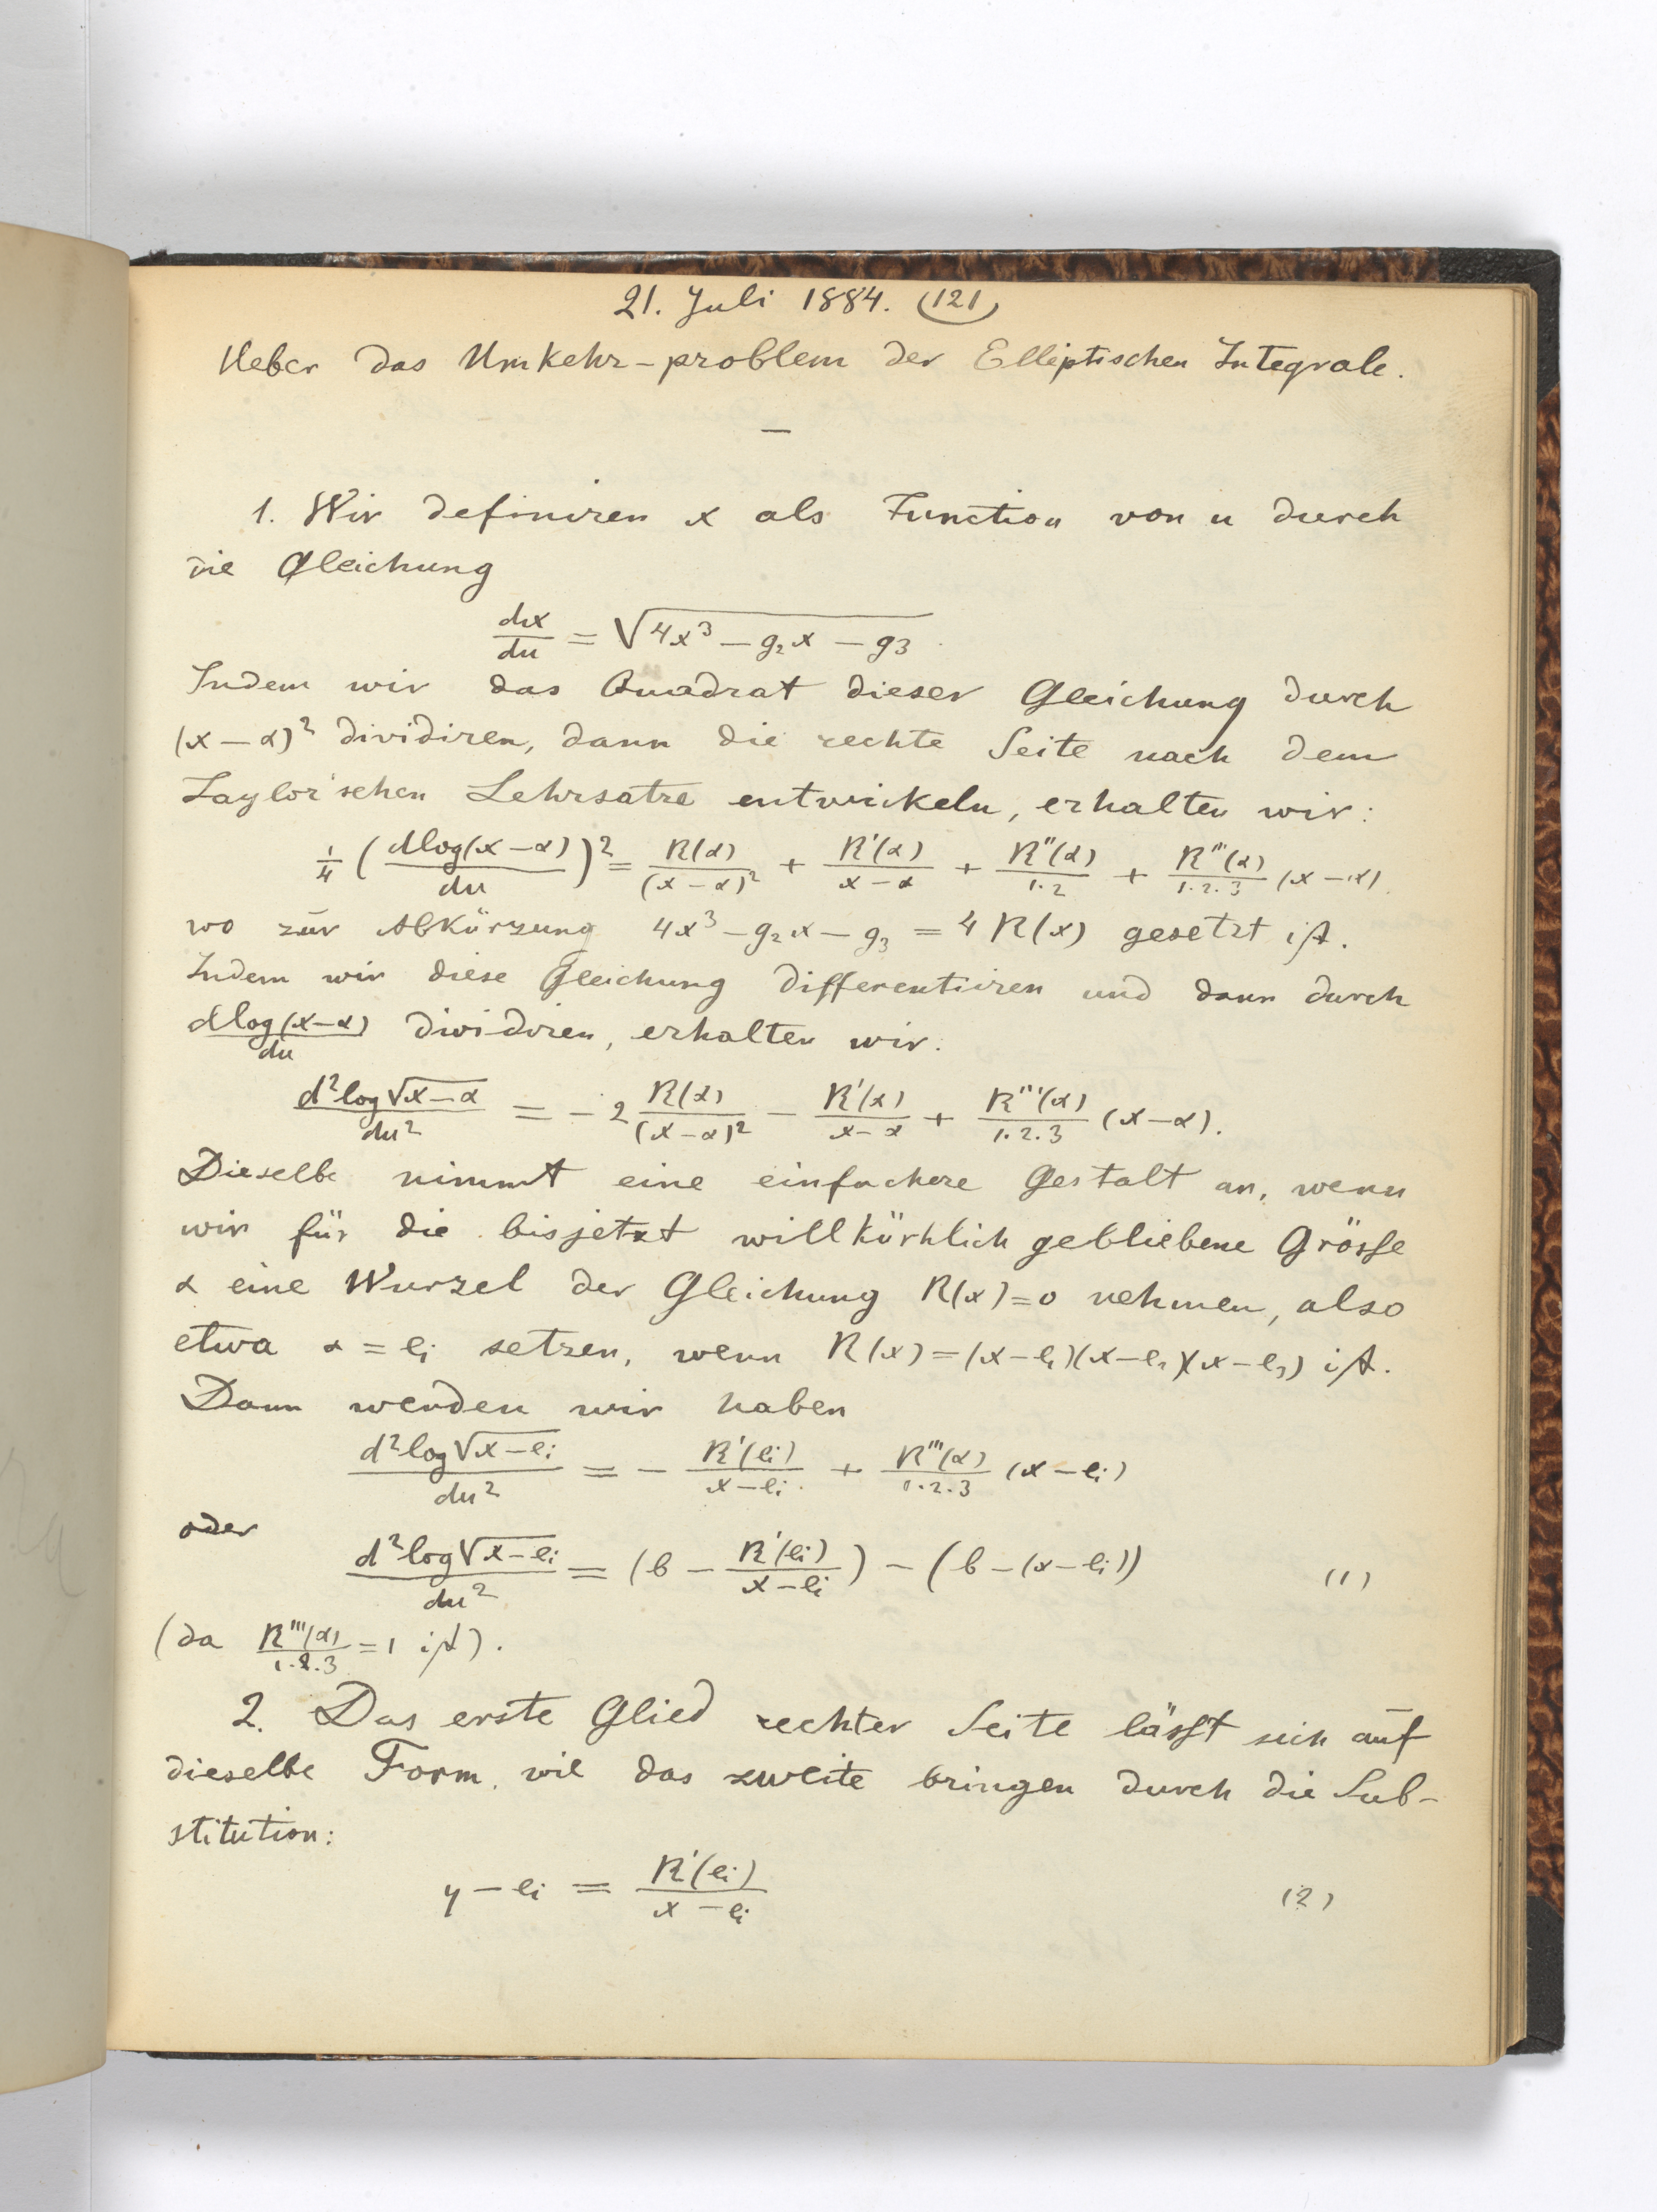 21. Juli 1884. (121)
Ueber das Umkehr-problem der Elliptischen Integrale.
—
1. Wir definiren x als Function von u durch
die Gleichung
dx/du = √(4x³ − g₂x − g₃)
Indem wir das Quadrat dieser Gleichung durch
(x − α)² dividiren, dann die rechte Seite nach dem
Taylor'schen Lehrsatze entwickeln, erhalten wir:
1/4 (dlog(x − α)/du)² = R(α)/(x − α)² + R'(α)/(x − α) + R''(α)/1.2 + R'''(α)/1.2.3 (x − α).
wo zur Abkürzung 4x³ − g₂x − g₃ = 4R(x) gesetzt ist.
Indem wir diese Gleichung differentiiren und dann durch
dlog(x − α)/du dividiren, erhalten wir:
d²log√(x − α)/du² = − 2 R(α)/(x − α)² − R'(α)/(x − α) + R'''(α)/1.2.3 (x − α).
Dieselbe nimmt eine einfachere Gestalt an, wenn
wir für die bisjetzt willkürhlich gebliebene Grösse
α eine Wurzel der Gleichung R(x) = 0 nehmen, also
etwa α = eᵢ setzen, wenn R(x) = (x − e₁)(x − e₂)(x − e₃) ist.
Dann werden wir haben
d²log√(x − eᵢ)/du² = − R'(eᵢ)/(x − eᵢ) + R'''(α)/1.2.3 (x − eᵢ)
oder
d²log√(x − eᵢ)/du² = (b − R'(eᵢ)/(x − eᵢ)) − (b − (x − eᵢ)) (1)
(da R'''(α)/1.2.3 = 1 ist).
2. Das erste Glied rechter Seite lässt sich auf
dieselbe Form, wie das zweite bringen durch die Sub-
stitution:
y − eᵢ = R'(eᵢ)/(x − eᵢ) (2)